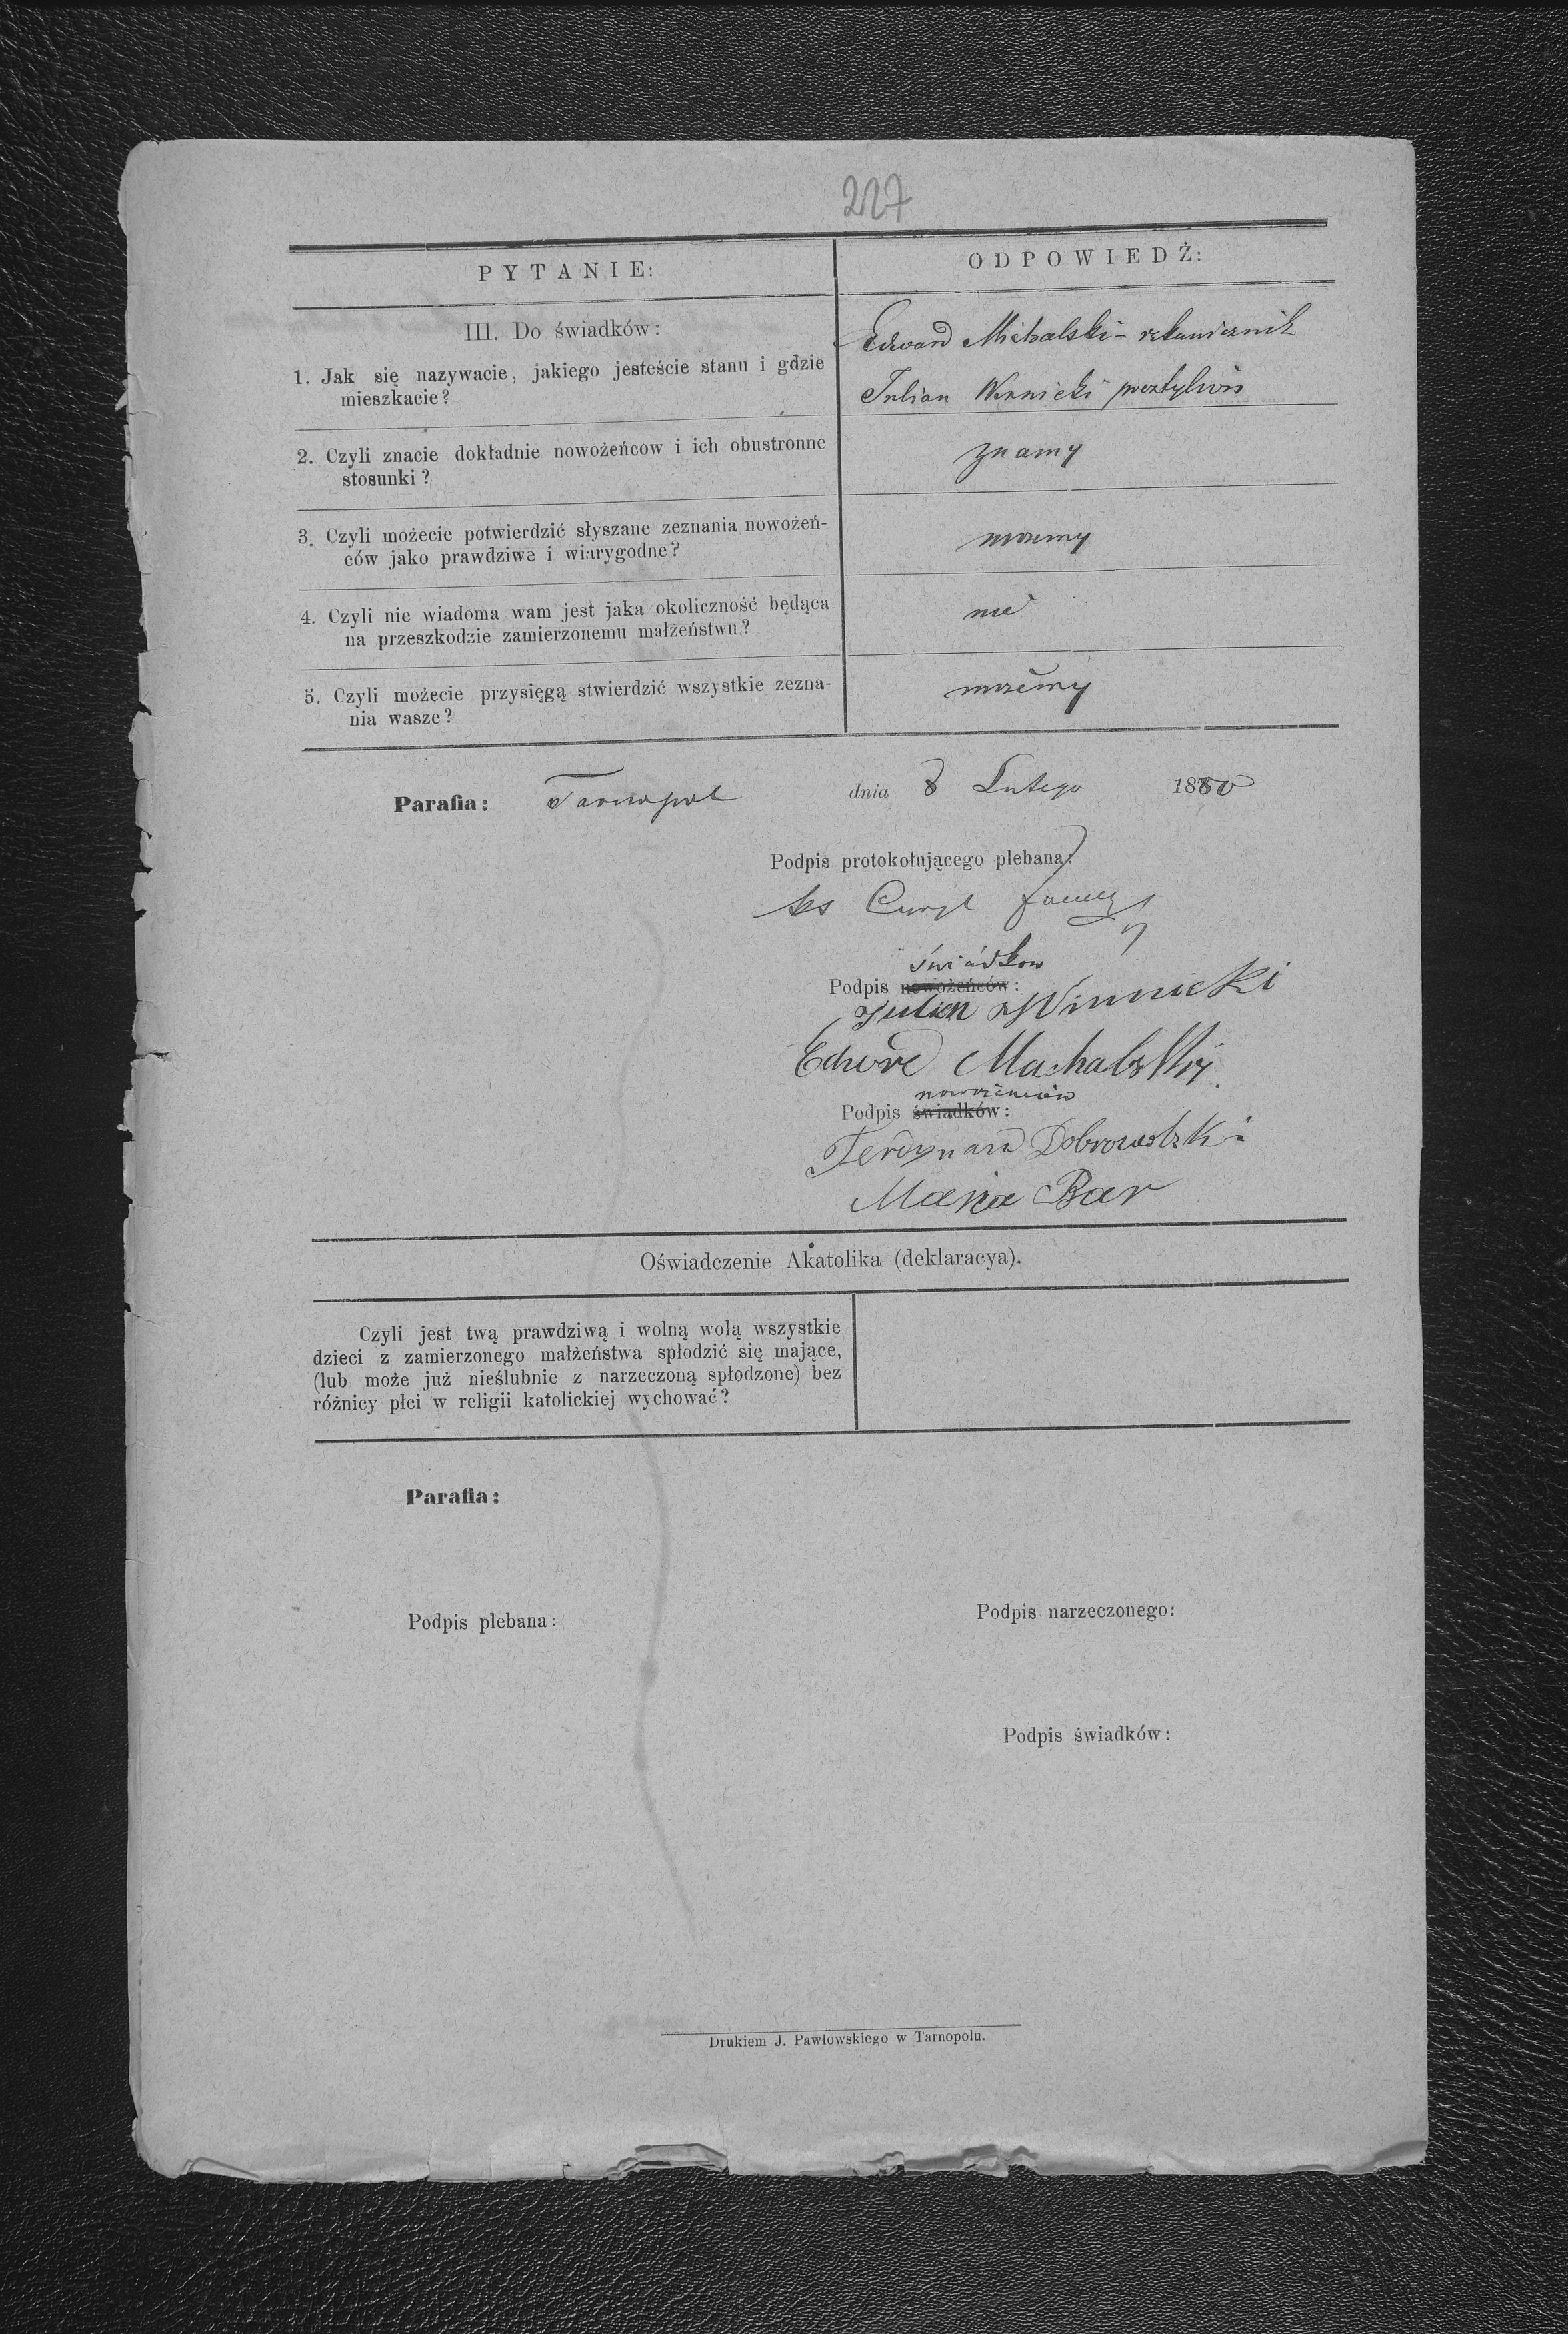 227
PYTANIE:
ODPOWIEDŹ:
III. Do świadków:
1. Jak się nazywacie, jakiego jesteście stanu i gdzie
mieszkacie?
Edward Michalski - rękawicznik
Julian Winnicki
2. Czyli znacie dokładnie nowożeńcow i ich obustronne
stosunki?
znamy
3. Czyli możecie potwierdzić słyszane zeznania nowożeń-
ców jako prawdziwe i wiarygodne?
możemy
4. Czyli nie wiadoma wam jest jaka okoliczność będąca
na przeszkodzie zamierzonemu małżeństwu?
nie
5. Czyli możecie przysięgą stwierdzić wszystkie zezna-
nia wasze?
możemy
Parafia: Tarnopol dnia 8 Lutego 1880
Podpis protokołującego plebana:
ks Cyryl
świádkow
Podpis nowożeńców:
Julian Winnicki
Edward Machalski
nowożencow
Podpis świadków:
Ferdynand Dobrowolski
Maria Bar
Oświadczenie Akatolika (deklaracya).
Czyli jest twą prawdziwą i wolną wolą wszystkie
dzieci z zamierzonego małżeństwa spłodzić się mające,
(lub może już nieślubnie z narzeczoną spłodzone) bez
różnicy płci w religii katolickiej wychować?
Parafia:
Podpis plebana:
Podpis narzeczonego:
Podpis świadków:
Drukiem J. Pawłowskiego w Tarnopolu.